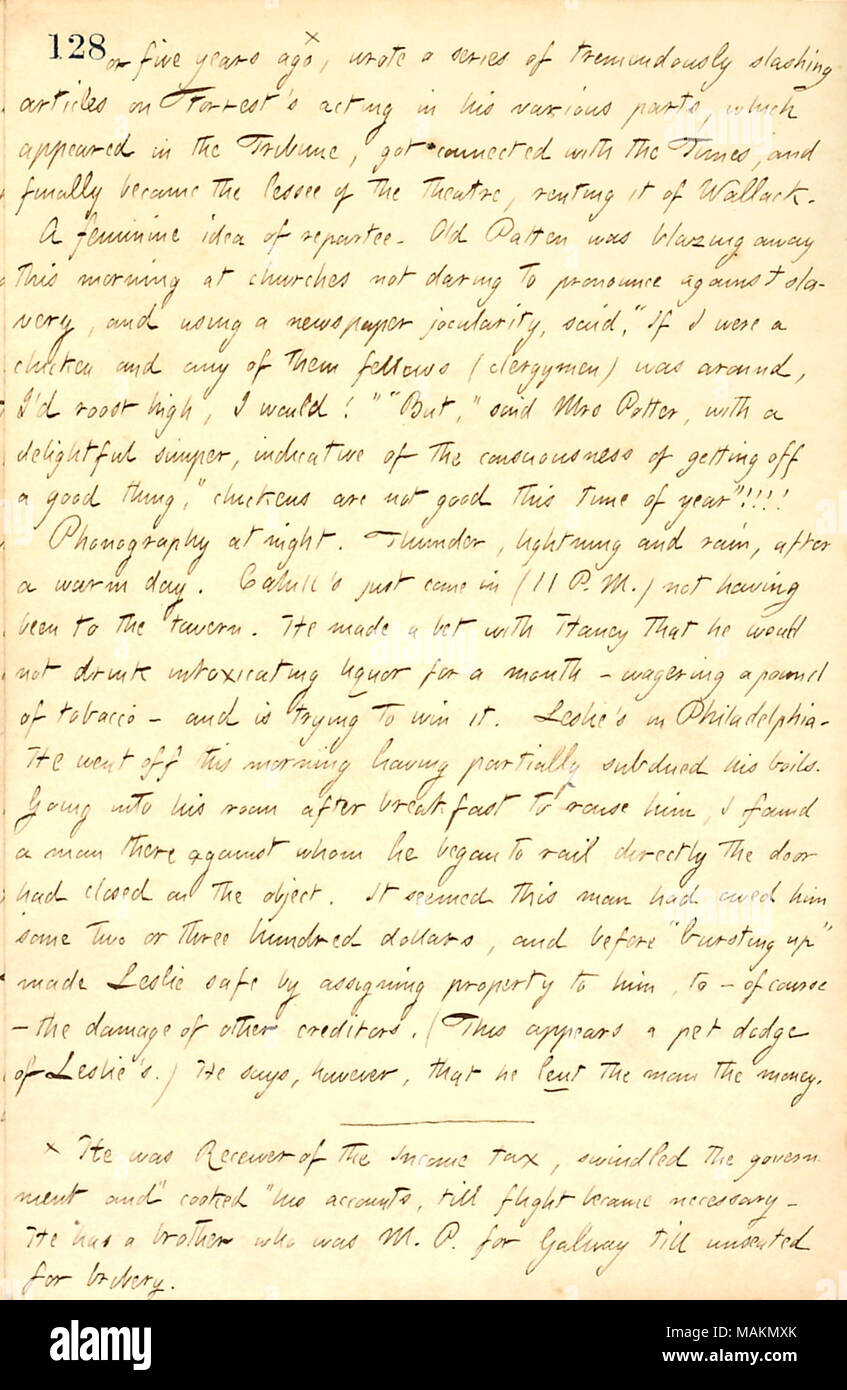 128
or five years ago x, wrote a series of tremendously slashing
articles on Forrest's acting in his various parts, which
appeared in the Tribune, got connected with the Times, and
finally became the lessee of the theatre, renting it of Wallack.
A feminine idea of repartee. Old Patten was blazing away
this morning at churches not daring to pronounce against sla-
very, and using a newspaper jocularity, said, "If I were a
chicken and any of them fellows (clergymen) was around,
I'd roost high, I would!" "But," said Mrs Potter, with a
delightful simper, indicative of the consciousness of getting off
a good thing, "chickens are not good this time of year"!!!!
Phonography at night. Thunder, lightning and rain, after
a warm day. Cahill's just come in (11 P. M.) not having
been to the tavern. He made a bet with Haney that he would
not drink intoxicating liquor for a month - wagering a pound
of tobacco - and is trying to win it. Leslie's in Philadelphia.
He went off this morning having partially subdued his boils.
Going into his room after breakfast to rouse him, I found
a man there against whom he began to rail directly the door
had closed on the object. It seemed this man had owed him
some two or three hundred dollars, and before "bursting up"
made Leslie safe by assigning property to him, to - of course
- the damage of other creditors. (This appears a pet dodge
of Leslie's.) He says, however, that he lent the man the money.
x He was Receiver of the Income tax, swindled the govern-
ment and "cooked" his accounts, till flight became necessary -
He has a brother who was M. P. for Galway till unseated
for bribery.
alamy
Image ID: MAKMXK
www.alamy.com